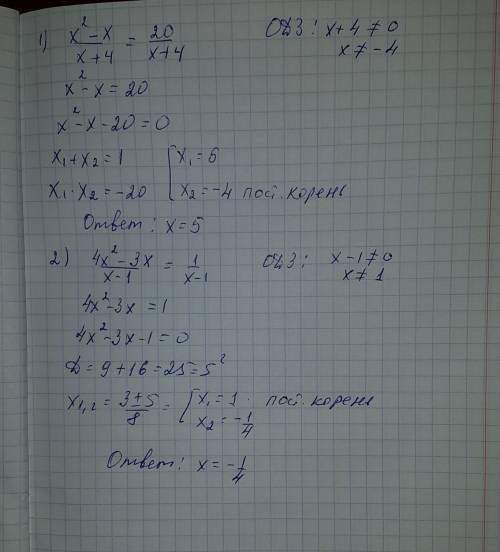 1) (x² - x)/(x + 4) = 20/(x + 4)   ОДЗ: x + 4 ≠ 0
x ≠ -4
x² - x = 20
x² - x - 20 = 0
x₁ + x₂ = 1   [x₁ = 5
x₁ · x₂ = -20   x₂ = -4 пост. корень
Ответ: x = 5
2) (4x² - 3x)/(x - 1) = 1/(x - 1)   ОДЗ: x - 1 ≠ 0
x ≠ 1
4x² - 3x = 1
4x² - 3x - 1 = 0
D = 9 + 16 = 25 = 5²
x₁,₂ = (3 ± 5)/8 = [x₁ = 1 пост. корень
x₂ = -1/4
Ответ: x = -1/4